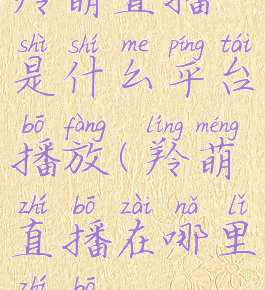 羚萌直播
shì shí me píng tái
是什么平台
bō fàng líng méng
播放(羚萌
zhí bō zài nǎ lǐ
直播在哪里
zhí bō